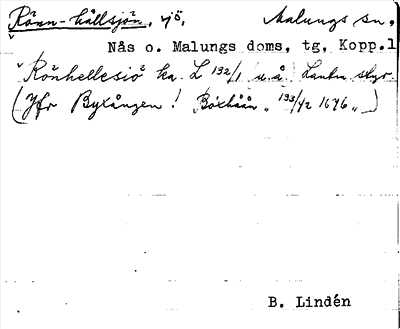 Rönn-hällsjön, sjö, Malungs sn,
Nås o. Malungs doms. tg, Kopp.l
Rönhellesiö ka. L 192/1 u.å. Lantm styr.
(Jfr Byxången! Böxhåån " 193/42 1676 " )
B. Lindén